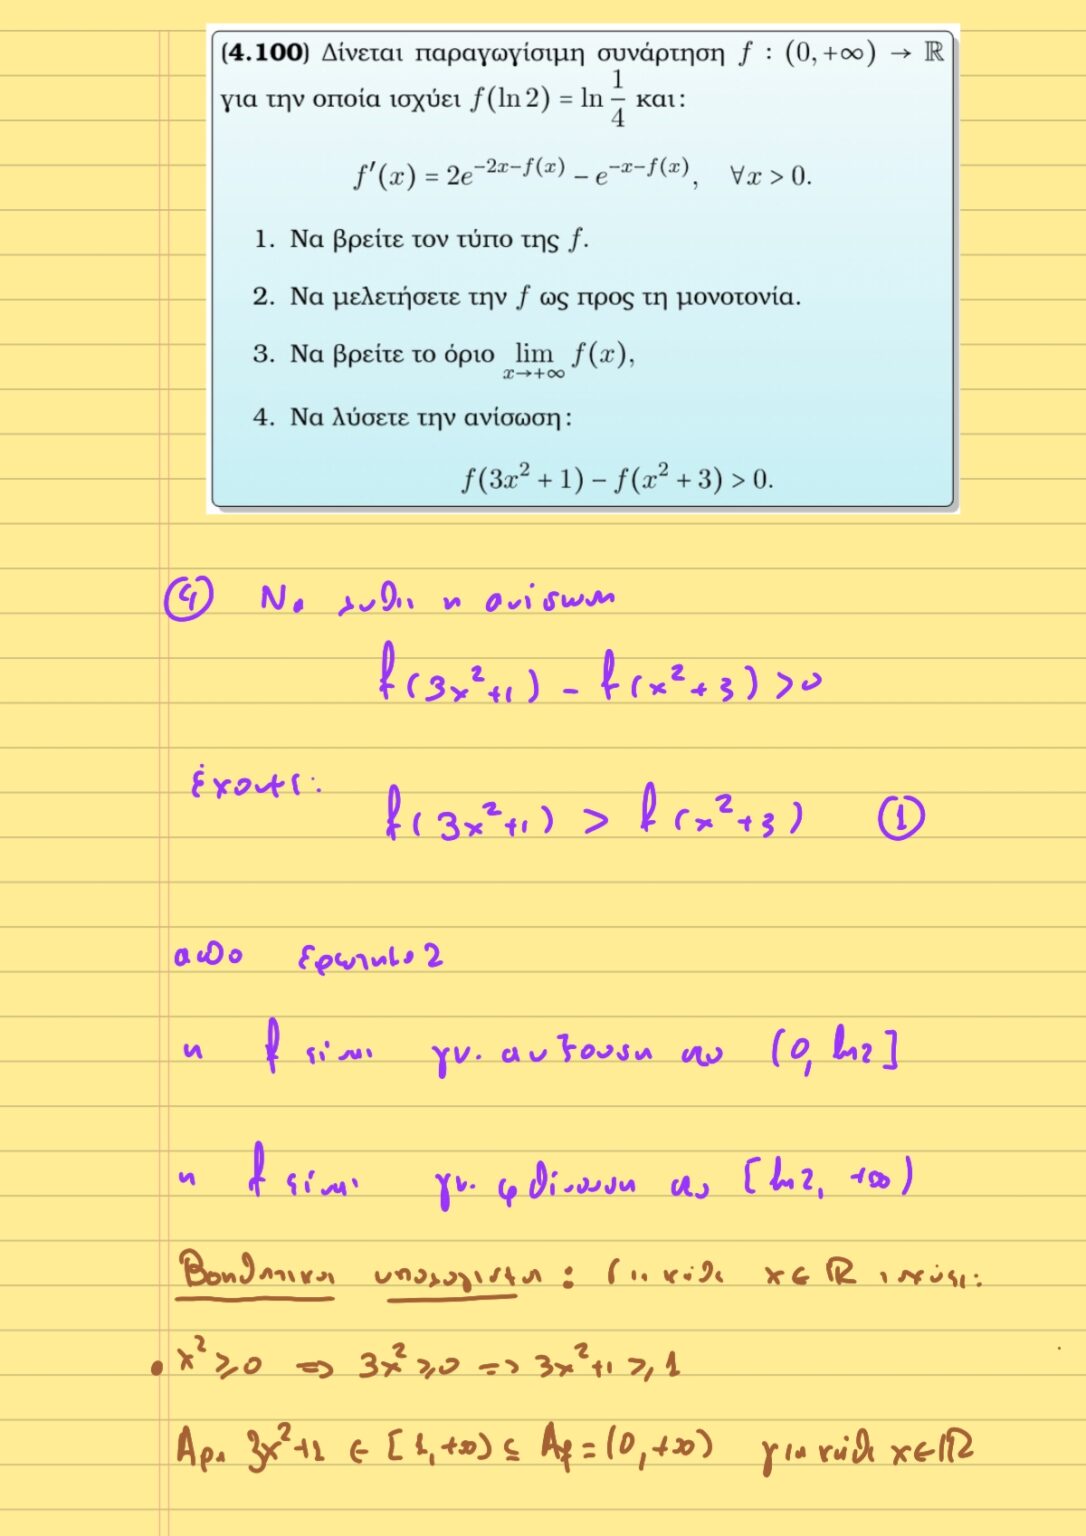 (4.100) Δίνεται παραγωγίσιμη συνάρτηση f : (0, +∞) → ℝ
για την οποία ισχύει f(ln 2) = ln 1/4 και:
f′(x) = 2e^{-2x-f(x)} − e^{-x-f(x)}, ∀x > 0.
1. Να βρείτε τον τύπο της f.
2. Να μελετήσετε την f ως προς τη μονοτονία.
3. Να βρείτε το όριο lim_{x→+∞} f(x),
4. Να λύσετε την ανίσωση:
f(3x² + 1) − f(x² + 3) > 0.
④ Να λυθεί η ανίσωση
f(3x²+1) - f(x²+3) > 0
έχουμε:
f(3x²+1) > f(x²+3) ①
από ερώτημα 2
η f είναι γν. αύξουσα στο (0, ln2]
η f είναι γν. φθίνουσα στο [ln2, +∞)
Βοηθητικοί υπολογισμοί : Για κάθε x∈ℝ ισχύει:
• x² ≥ 0 ⇒ 3x² ≥ 0 ⇒ 3x²+1 ≥ 1
Άρα 3x²+1 ∈ [1,+∞) ⊆ A_f = (0,+∞) για κάθε x∈ℝ